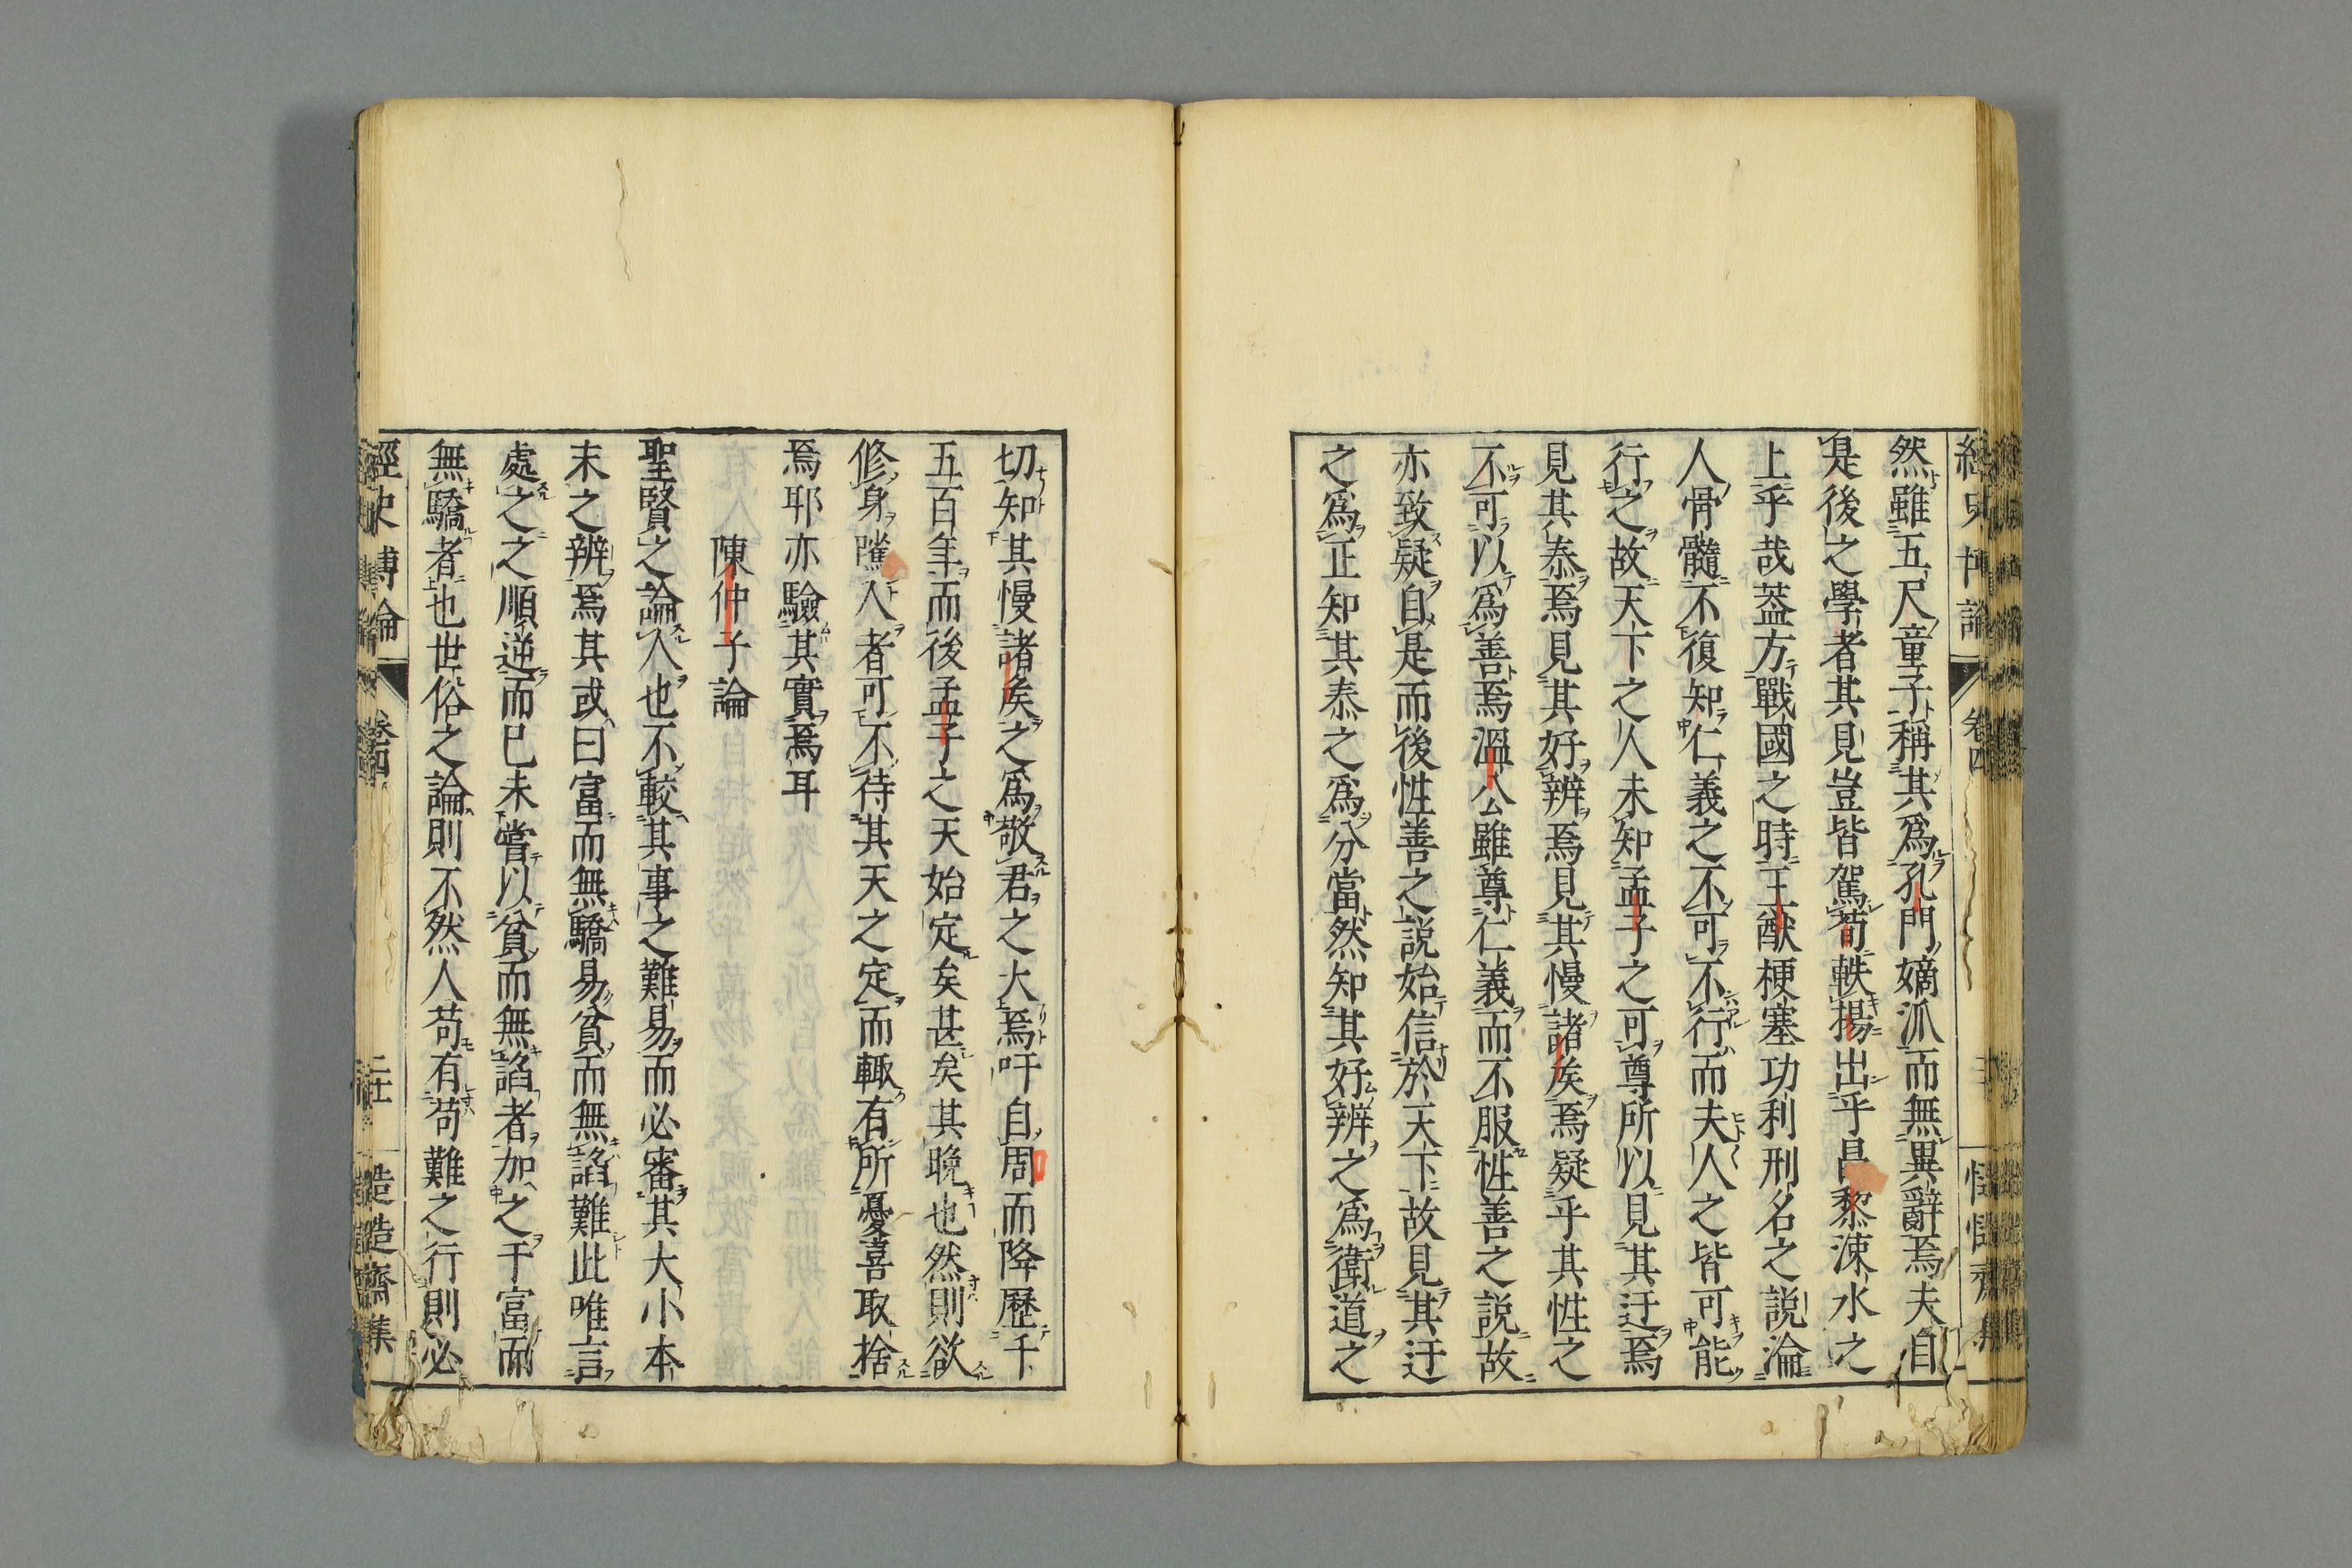 然雖五尺童子稱其爲孔門嫡派而無異辭焉夫自
是後之學者其見豈皆駕荀軼揚出乎昌黎涑水之
上乎哉葢方戰國之時王猷梗塞功利刑名之説淪
人骨髓不復知仁義之不可不行而夫人之皆可能
行之故天下之人未知孟子之可尊所以見其迂焉
見其泰焉見其好辨焉見其慢諸矦焉疑乎其性之
不可以爲善焉溫公雖尊仁義而不服性善之説故
亦致疑自是而後性善之説始信於天下故見其迂
之爲正知其泰之爲分當然知其好辨之爲衛道之
切知其慢諸矦之爲敬君之大焉吁自周而降歷千
五百年而後孟子之天始定矣甚矣其晚也然則欲
修身隲人者可不待其天之定而輙有所憂喜取捨
焉耶亦驗其實焉耳
陳仲子論
聖賢之論人也不較其事之難易而必審其大小本
末之辨焉其或曰富而無驕易貧而無諂難此唯言
處之之順逆而已未嘗以貧而無諂者加之于富而
無驕者也世俗之論則不然人苟有苟難之行則必
經史博論
卷四